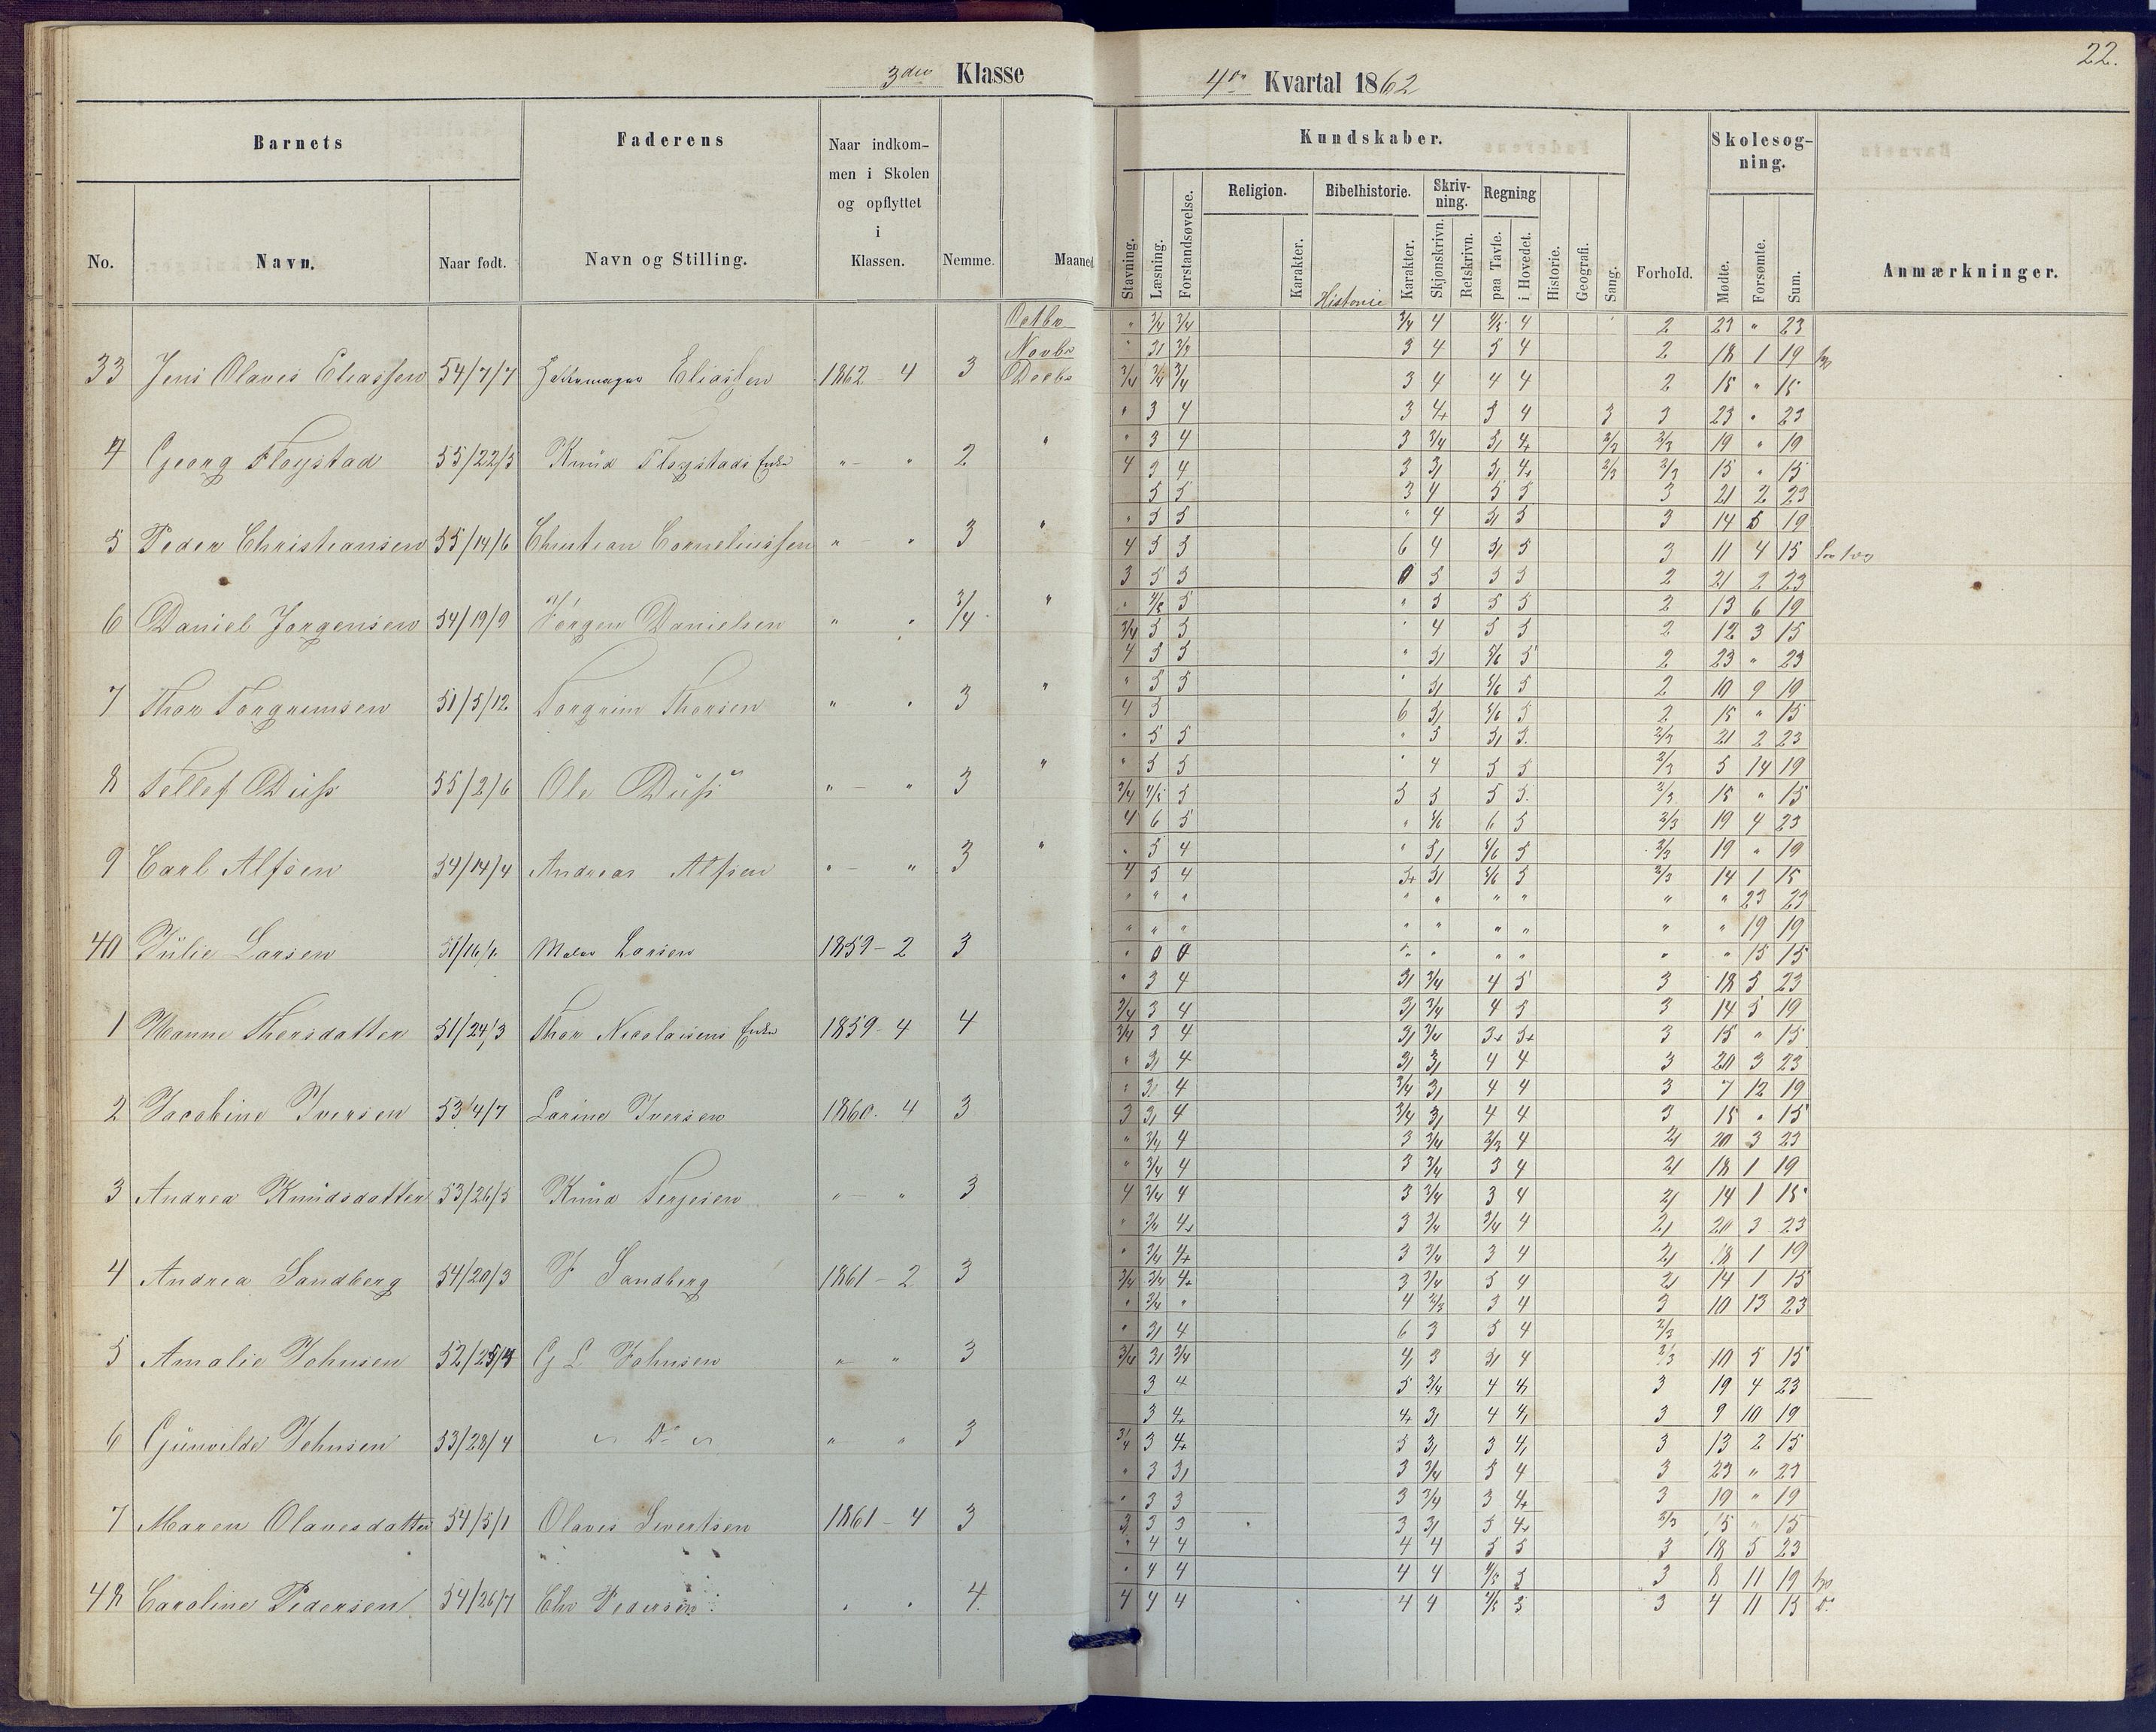 22.
3die Klasse
4de Kvartal 1862
Barnets
Faderens
Naar indkom-
men i Skolen
og opflyttet
i
Klassen.
Nemme.
Maaned
No.
Navn.
Naar født.
Navn og Stilling.
Kundskaber.
Stavning.
Læsning.
Forstandsøvelse.
Religion.
Karakter.
Bibelhistorie.
Historie
Karakter.
Skriv-
ning.
Skjønskrivn.
Retskrivn.
Regning
paa Tavle.
i Hovedet.
Historie.
Geografi.
Sang.
Forhold.
Skolesøg-
ning.
Mødte.
Forsømte.
Sum.
Anmærkninger.
Octbr " 3/4 3/4 3/4 4 4/5 4 2 23 " 23
Novbr 3 4 5 4 2 18 1 19
33 Jens Olaves Eliassen 54/7/7 Eliassen 1862 4 3 Decbr 3/4 3/4 3/4 3 4 4 4 2 15 " 15
" 3 4 3 4+ 3 4 3 3 23 " 23
" 3 4 3 3/4 4+ 2/3 2/3 19 " 19
4 Georg Fløystad 55/22/5 Knud Fløystads Enke " " 2 " 4 3 4 3 4+ 2/3 2/3 15 " 15
5 5 3 4 5 5 3 21 2 23
" 5 5 " 4 5 3 14 5 19
5 Peder Christiansen 55/14/6 Christian Corneliussen " " 3 " 4 5 5 6 4 5 3 11 4 15
3 5 5 0 5 5 5 2 21 2 23
" 4/5 5 " 5 5 5 2 13 6 19
6 Daniel Jørgensen 54/19/9 Jørgen Danielsen " " 3/4 " 3/4 5 5 " 4 5 5 2 12 3 15
4 5 5 " 5/6 5 2 23 " 23
" 5 5 " 5/6 5 2 10 9 19
7 Thor Torgrimsen 51/5/12 Torgrim Thorsen " " 3 " 4 5 6 5/6 5 2 15 " 15
" 5 5 " 5 5 2/3 21 2 23
" 5 5 " 4 5 5 2/3 5 14 19
8 Tellef Duss 55/2/6 Ole Duss " " 3 " 3/4 4/5 5 5 5 5 5 2/3 15 " 15
4 6 5 " 5/6 6 5 2/3 19 4 23
" 5 4 " 5/6 5 2/3 19 " 19
9 Carl Alfsen 54/14/4 Andreas Alfsen " " 3 " 4 5 4 5+ 5/6 5 2/3 14 1 15
" " " " " " " " " 23 23
" " " " " " " " " 19 19
40 Julie Larsen 51/16/1 Maler Larsen 1859 - 2 3 " 0 0 " " " " " " 15 15
" 3 4 3/4 4 5 3 18 5 23
3/4 3 4 3/4 4 5 3 14 5 19
1 Hanne Thorsdatter 51/24/3 Thor Nicolaisens Enke 1859 - 4 4 3/4 3 4 3/4 3+ 5+ 3 15 " 15
" 4 4 4 3 20 3 23
" 4 3/4 4 4 3 7 12 19
2 Jacobine Iversen 53/4/7 Larine Iversen 1860. 4 3 3 4 3/4 4 4 3 15 " 15
" 3/4 4 3 3/4 2/3 4 20 3 23
" 3/4 4 3 3/4 3 4 18 1 19
3 Andrea Knudsdatter 53/26/5 Knud Terjesen " " 3 4 3/4 4 3 3/4 3 4 14 1 15
" 3/4 4+ 3 3/4 3/4 4 20 3 23
" 3/4 4+ 3 3/4 3 4 18 1 19
4 Andrea Sandberg 54/20/3 F Sandberg 1861 - 2 3 3/4 3/4 4+ 3 3/4 5 4 14 1 15
" 3/4 " 4 2/3 3 4 3 10 13 23
" 4 6 3 5 4 2/3
5 Amalie Johnsen 52/25/4 G L Johnsen " " 3 3/4 3/4 3 4 2/3 10 5 15
3 4 5 3/4 4 3 19 4 23
3 4+ 4+ 4 3 9 10 19
6 Gunvilde Johnsen 53/28/4 " Do " " " 3 3/4 3 4+ 5 3 3 13 2 15
" 3 3 3/4 5 4 3 23 " 23
" 3 3 3 3/4 3 4+ 3 19 " 19
7 Maren Olavesdatter 54/5/1 Olaves Sivertsen 1861 - 4 3 3 3 3 3 5 4+ 2/3 15 " 15
" 4 4 4 4 5 5 3 18 5 23
" 4 4 4 4 4/5 5 3 8 11 19
48 Caroline Pedersen 54/26/7 Chr Pedersen " " 4 4 4 4 4 4 4/5 3 4 11 15 Do